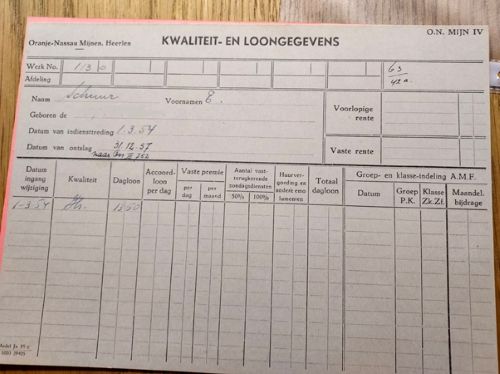 O.N. MIJN IV
Oranje-Nassau Mijnen, Heerlen
KWALITEIT- EN LOONGEGEVENS
Werk No. 1 3 0
Afdeling
63
42a
Naam Schuur Voornamen E.
Geboren de
Datum van indiensttreding 1.3.54
Datum van ontslag 31.12.57
naar On III 252
Voorlopige rente
Vaste rente
Datum ingang wijziging
Kwaliteit
Dagloon
Accoord-loon per dag
Vaste premie
per dag
per maand
Aantal vast-terugkerende zondagsdiensten
50%
100%
Huurver-goeding en andere emo-lumenten
Totaal dagloon
Groep- en klasse-indeling A.M.F.
Datum
Groep P.K.
Klasse Zk.Zf.
Maandel. bijdrage
1-3.54 1250
Model Ja 35 c